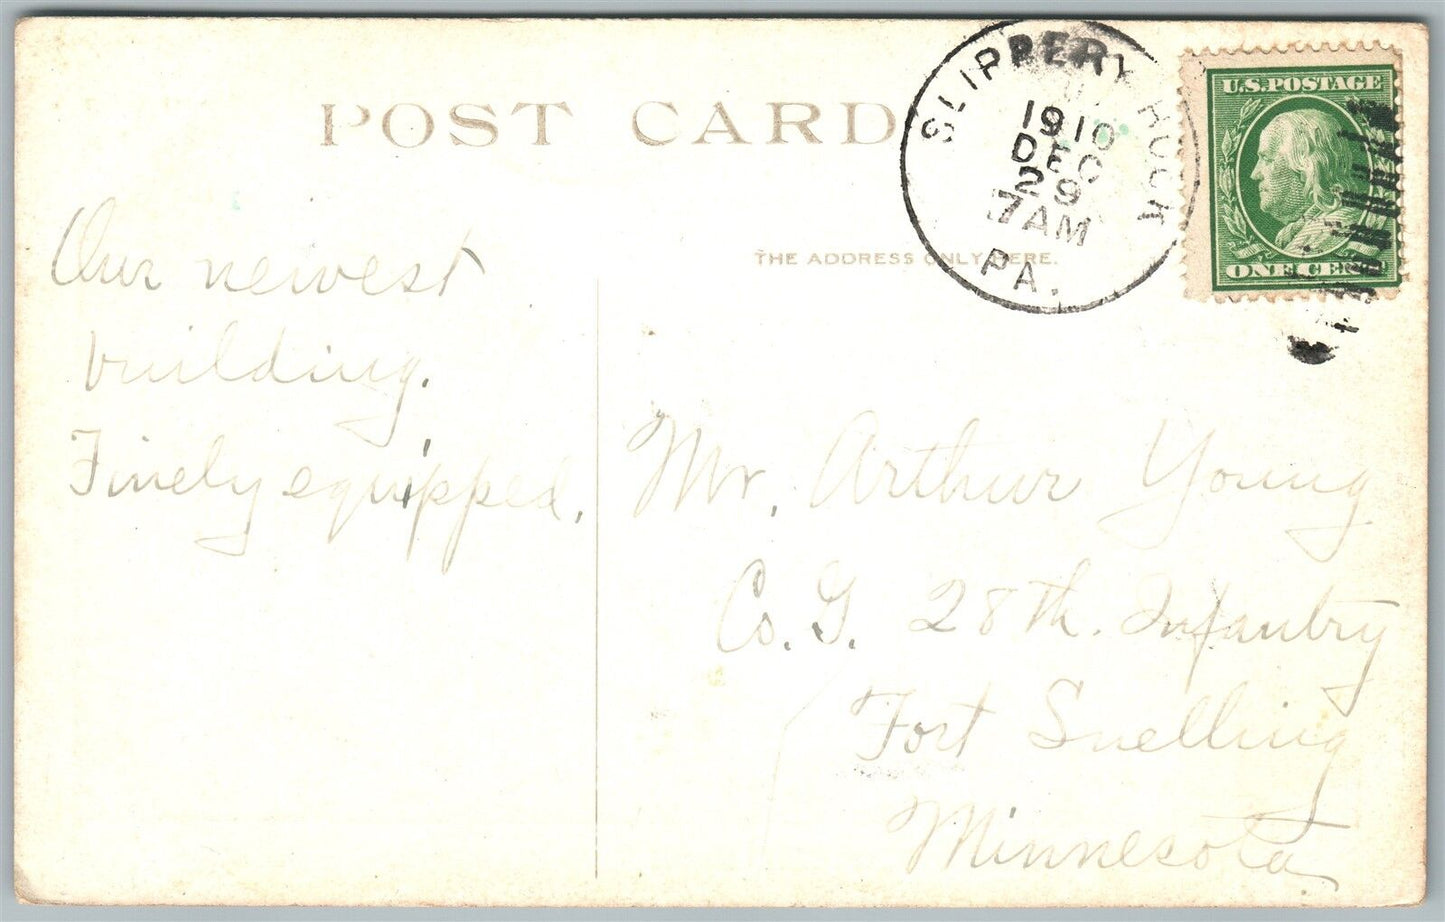 POST CARD
SLIPPERY ROCK
1910
DEC
29
7 AM
PA.
U.S. POSTAGE
ONE CENT
THE ADDRESS ONLY HERE.
Our newest
building.
Finely equipped.
Mr. Arthur Young
Co. G. 28th. Infantry
Fort Snelling
Minnesota